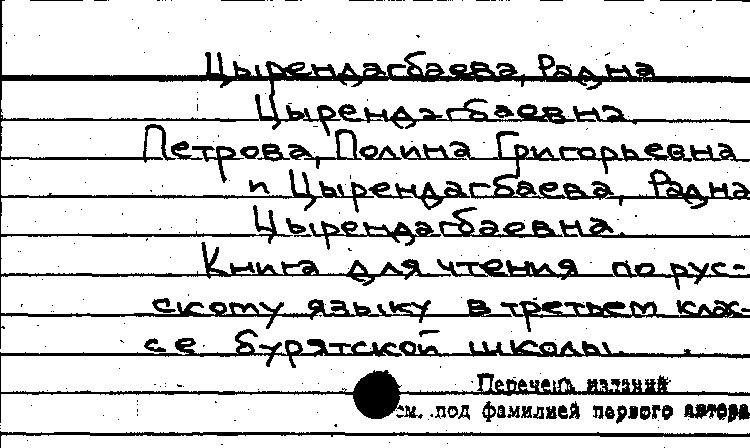 Цырендагбаева, Радна
Цырендагбаевна.
Петрова, Полина Григорьевна
и Цырендагбаева, Радна
Цырендагбаевна.
Книга для чтения по рус-
скому языку в третьем клас-
се бурятской школы.
Перечень изданий
см. под фамилией первого автора